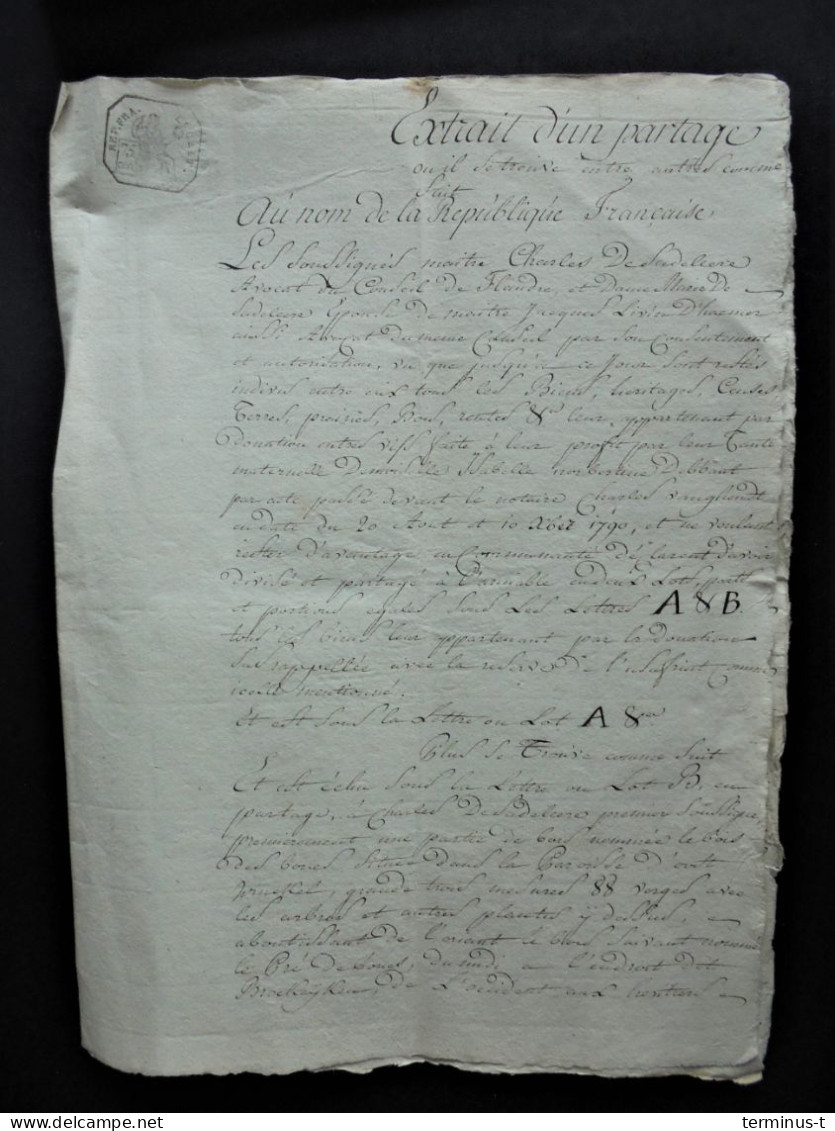 REP. FRA.
Extrait d'un partage
ou il se trouve entre autres comme
suit
Au nom de la République Française,
Les soussignés maitre Charles De Sadeleere
Avocat du Conseil de Flandre, et Dame Marie De
Sadeleere Epouse de maitre Jacques Livin D'haemer
aussi Avocat du meme Conseil par son Consentement
et autorisation, vu que jusqu'à ce Jour sont restés
indivis entre eux tous les Biens, heritages, Censes,
Terres, prairies, Bois, rentes &ra leur appartenant par
donation entres vifs faite à leur profit par leur Tante
maternelle Demoiselle Isabelle norbertine Debbaut
par acte passé devant le notaire Charles vanghendt
en date du 20 Aout et 10 Xbre 1790, et ne voulant
rester d'avantage en Communauté déclarent d'avoir
divisé et partagé à l'amiable en deux Lots, parts
et portions egales sous les Lettres A & B.
tous les biens leur appartenant par la donation
susrappellée avec la reserve de l'usufruit comme
icelle mentionné.
Et est sous la Lettre ou Lot A &ra
Plus se Trouve comme suit
Et est échu sous la Lettre ou Lot B, en
partage, à Charles DeSadeleere premier Soussigné
premierement une partie de bois nommée le bois
des boues situee dans la Paroisse d'
grande trois mesures 88 verges avec
les arbres et autres plantes y dessus,
aboutissant de l'orient le bois suivant nommé
le Pré de boues, du midi a l'endroit dit
de l'occident aux heritiers
terminus-t